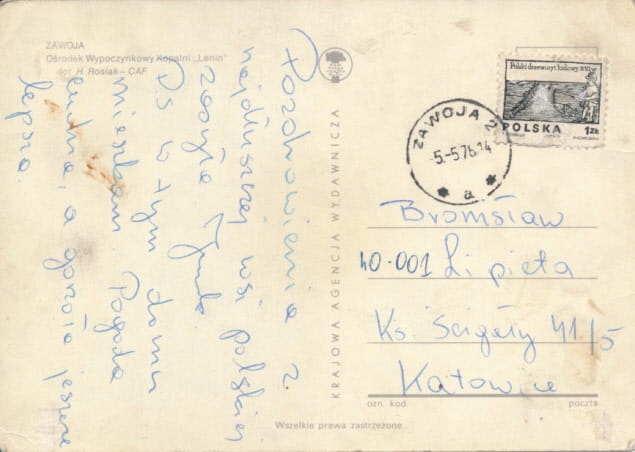 ZAWOJA
Ośrodek Wypoczynkowy Kopalni „Lenin"
fot. H. Rosiak – CAF
Pozdrowienia z
najdłuższej wsi polskiej
zasyła
PS W tym domu
mieszkam Pogoda
ładna, a
jeszcze
lepsza.
KRAJOWA AGENCJA WYDAWNICZA
Polski drzeworyt ludowy XVI w.
POLSKA 1 ZŁ
ZAWOJA 2
-5.-5.76.14
a
Bromsław
40-001 Lipieta
Ks. Ścigały 41/5
Katowice
ozn. kod. poczta
Wszelkie prawa zastrzeżone